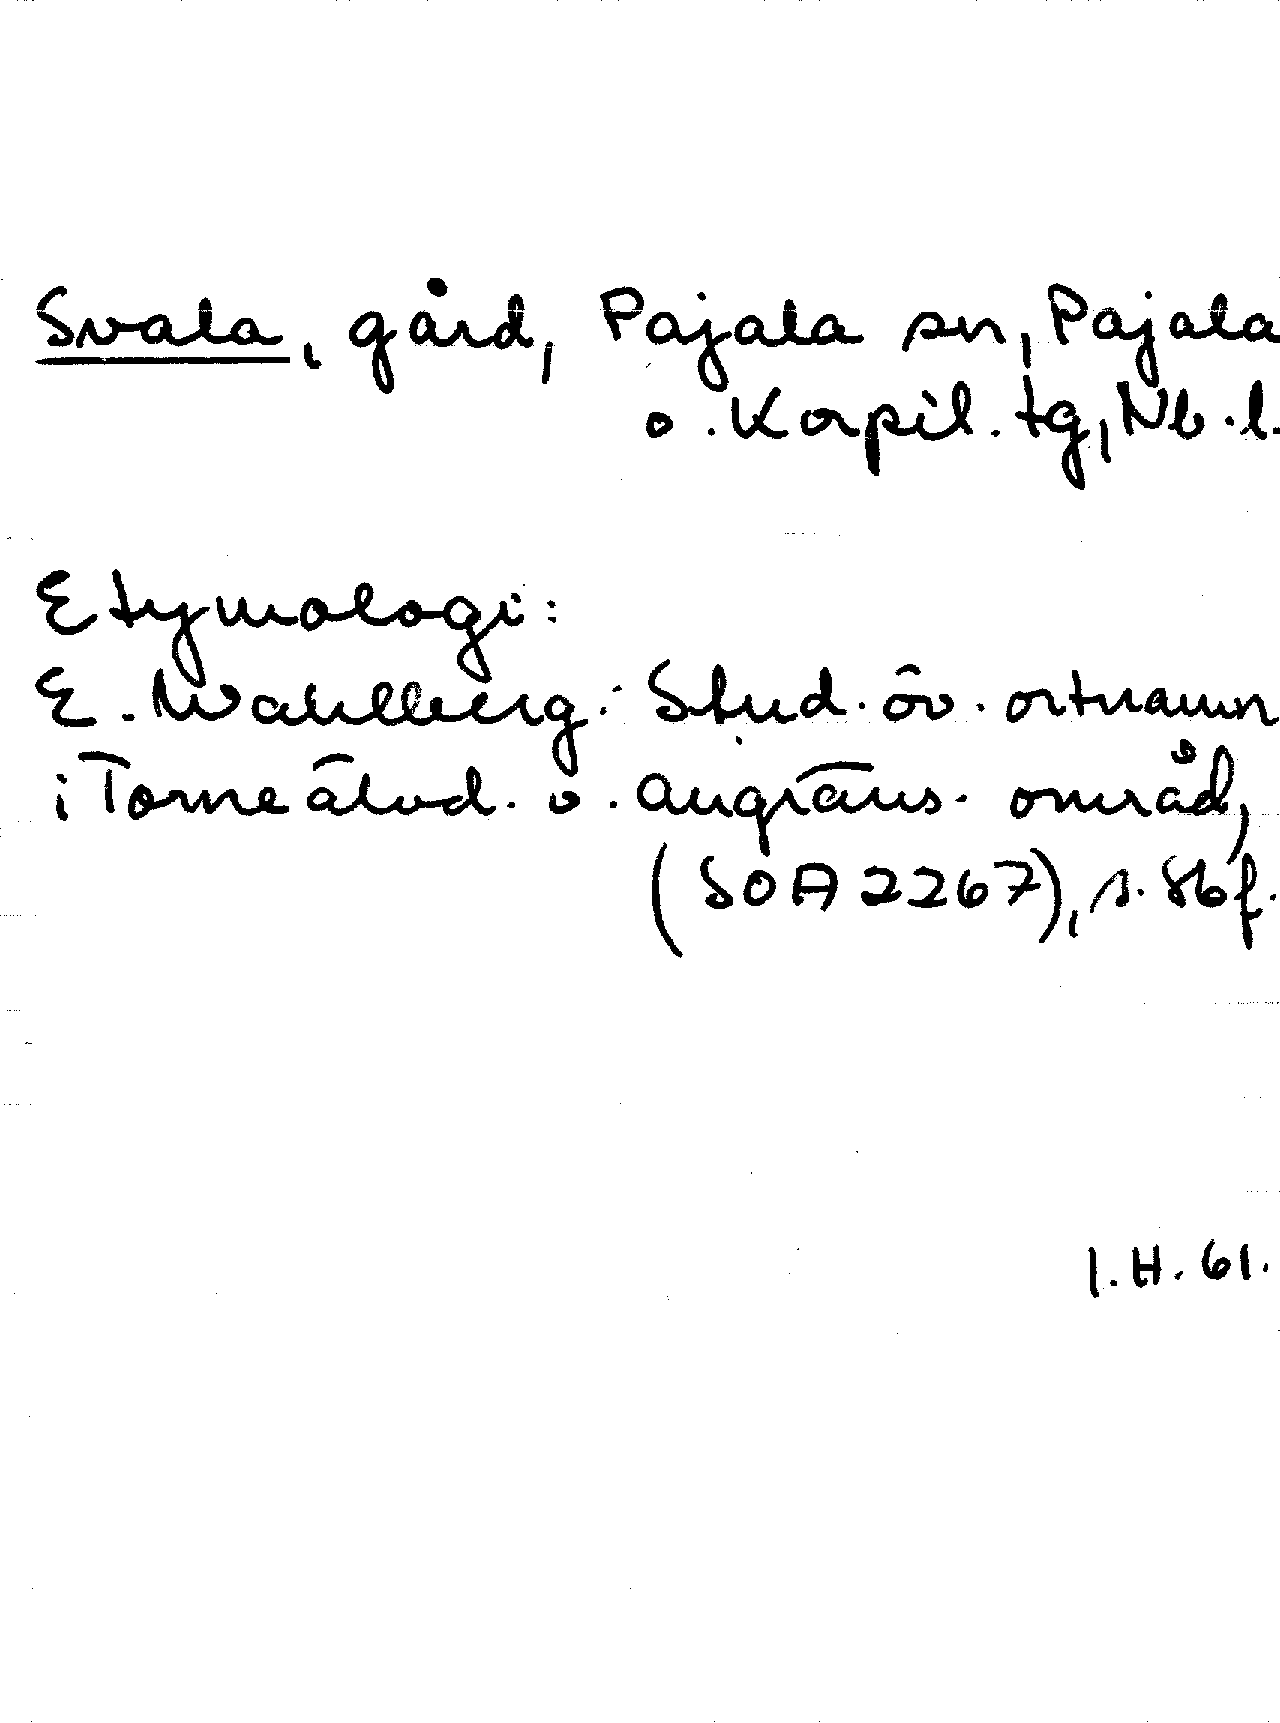 Svala, gård, Pajala sn, Pajala
o. Korpil. tg, Nb.l.
Etymologi:
E. Wahlberg: Stud. öv. ortnamn
i Torneälvd. o. angräns. områd,
(SOA 2267), s. 86 f.
I.H. 61.